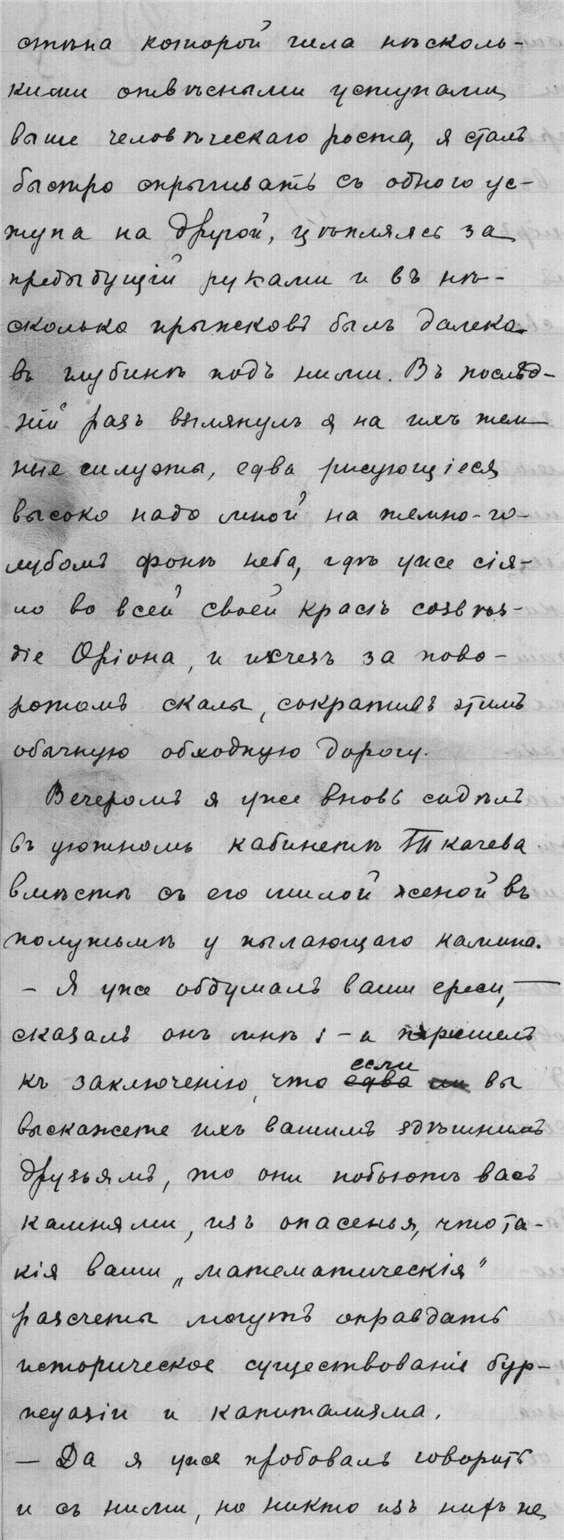 стѣна которой шла нѣсколь-
кими отвѣсными уступами,
выше человѣческаго роста, я сталъ
быстро спрыгивать съ одного ус-
тупа на другой, цѣпляясь за
предыдущій руками и въ нѣ-
сколько прыжковъ былъ далеко
въ глубинѣ подъ ними. Въ послѣд-
ній разъ взглянулъ я на ихъ тем-
ные силуэты, едва рисующіеся
высоко надо мной на темно-го-
лубомъ фонѣ неба, гдѣ уже сія-
ло во всей своей красѣ созвѣз-
діе Оріона, и исчезъ за пово-
ротомъ скалы, сокративъ этимъ
обычную обходную дорогу.
Вечеромъ я уже вновь сидѣлъ
въ уютномъ кабинетѣ Ткачева
вмѣстѣ съ его милой женой въ
полутьмѣ у пылающаго камина.
— Я уже обдумалъ ваши ереси, —
сказалъ онъ мнѣ: – и пришелъ
къ заключенію, что если вы
выскажете ихъ вашимъ здѣшнимъ
друзьямъ, то они побьютъ васъ
камнями, изъ опасенья, что та-
кія ваши „математическія"
разсчеты могутъ оправдать
историческое существованіе бур-
жуазіи и капитализма.
— Да я уже пробовалъ говорить
и съ ними, но никто изъ нихъ не